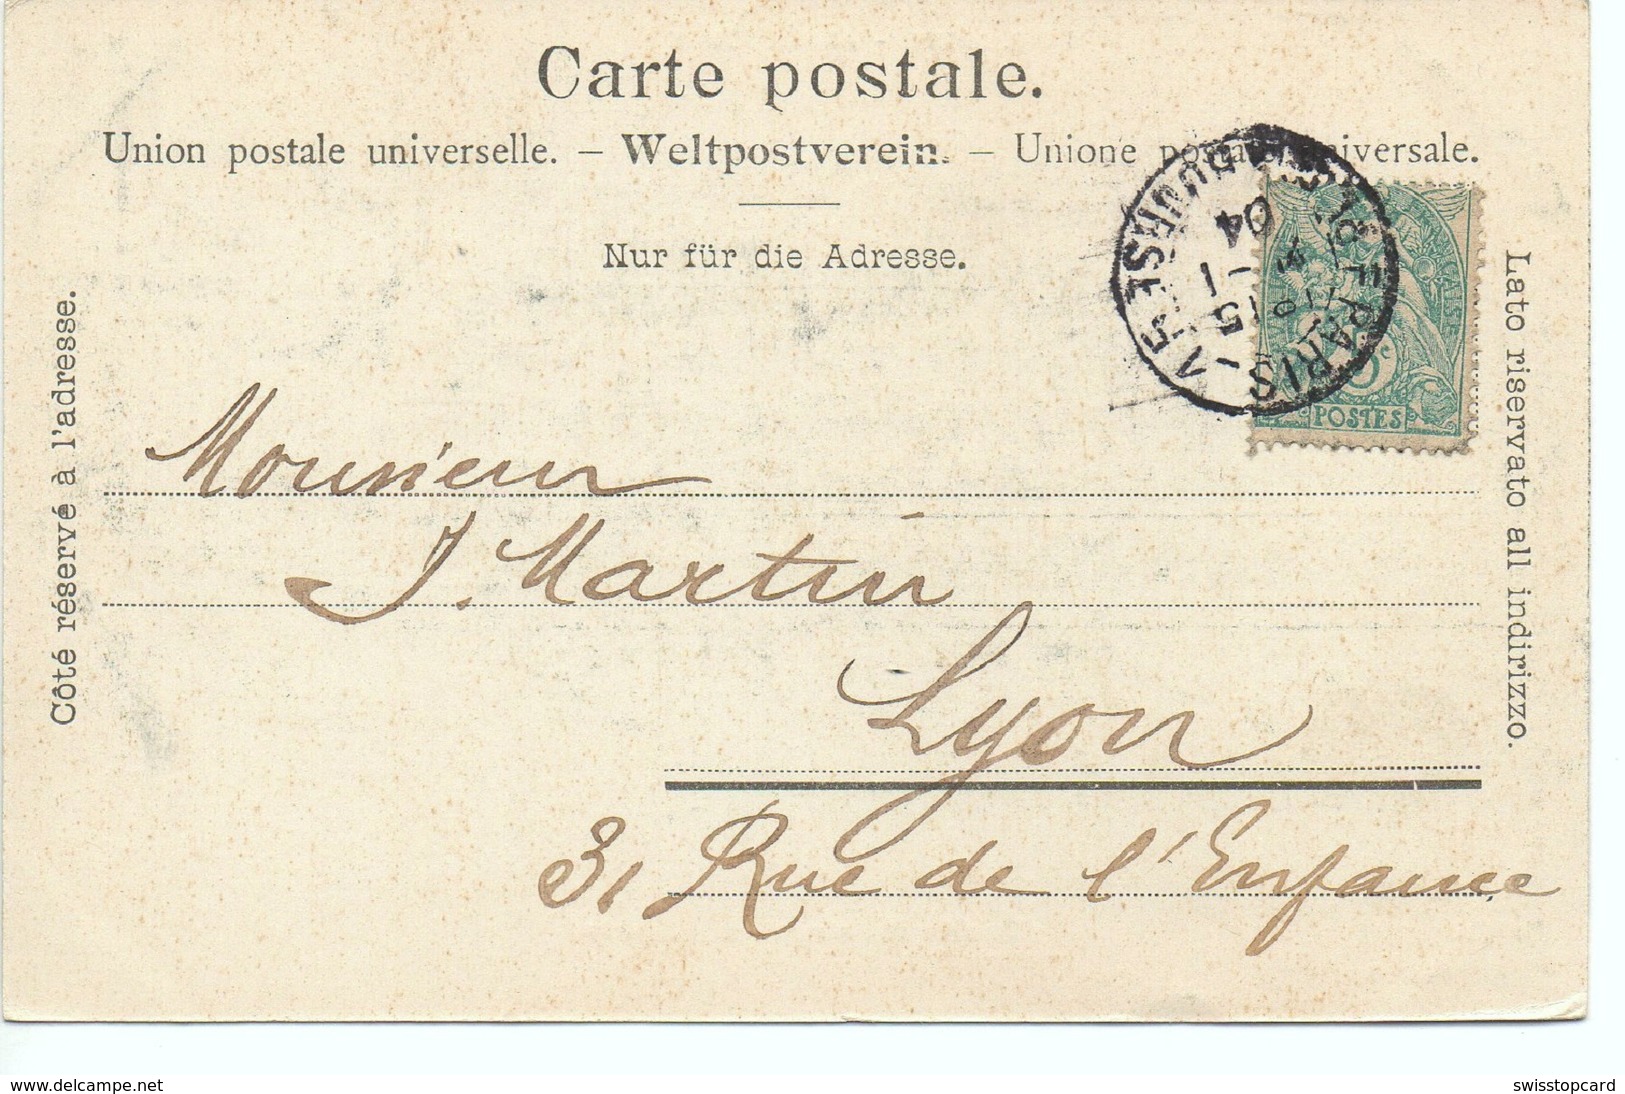 Carte postale.
Union postale universelle. – Weltpostverein. – Unione postale universale.
Nur für die Adresse.
Côté réservé à l'adresse.
Lato riservato all indirizzo.
PARIS
BOURSE
15
-1
04
5c
POSTES
Monsieur
J. Martin
Lyon
31 Rue de l'Enfance
www.delcampe.net
swisstopcard